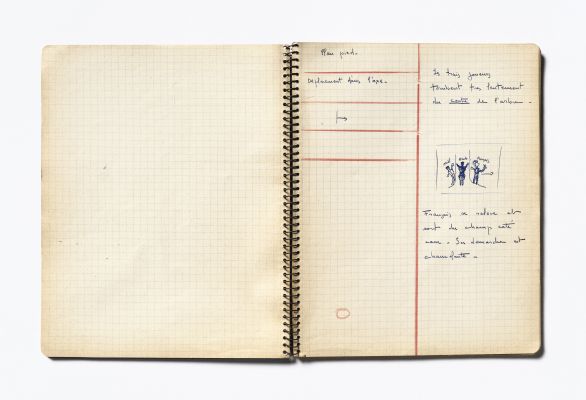 Plan pied.
Déplacement dans l'axe.
Les trois joueurs
tombent très lentement
du centre de l'arbre.
François se relève et
sort du champ côté
Sa démarche est